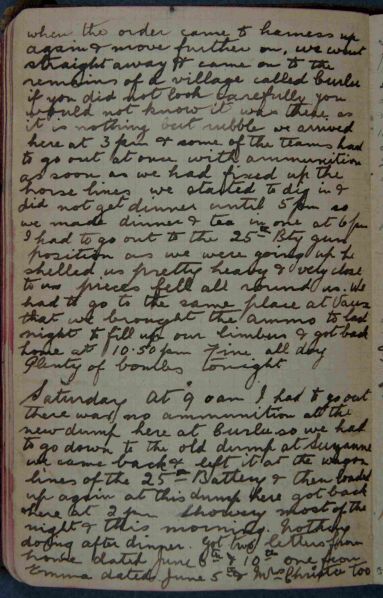 when the order came to harness up
again & move further on, we went
straight away & came on to the
remains of a village called Curlu
if you did not look carefully you
would not know it was there as
it is nothing but rubble we arrived
here at 3 pm & some of the teams had
to go out at once with ammunition
as soon as we had fixed up the
horse lines we started to dig in &
did not get dinner until 5 pm so
we made dinner & tea in one at 6 pm
I had to go out to the 25th Bty gun
position as we were going up he
shelled us pretty heavy & very close
to us pieces fell all round us. We
had to go to the same place at Vaux
that we brought the ammo to last
night to fill up our limbers & got back
home at 10.50 pm Fine all day
Plenty of bombs tonight
Saturday At 9 oam I had to go out
there was no ammunition at the
new dump here at Curlu so we had
to go down to the old dump at Suzanne
we came back & left it at the wagon
lines of the 25th Battery & then loaded
up again at this dump here got back
here at 2 pm Showery most of the
night & this morning. Nothing
doing after dinner. Got two letters from
home dated June 8th & 10th one from
Emma dated June 5th & Mrs Christie too